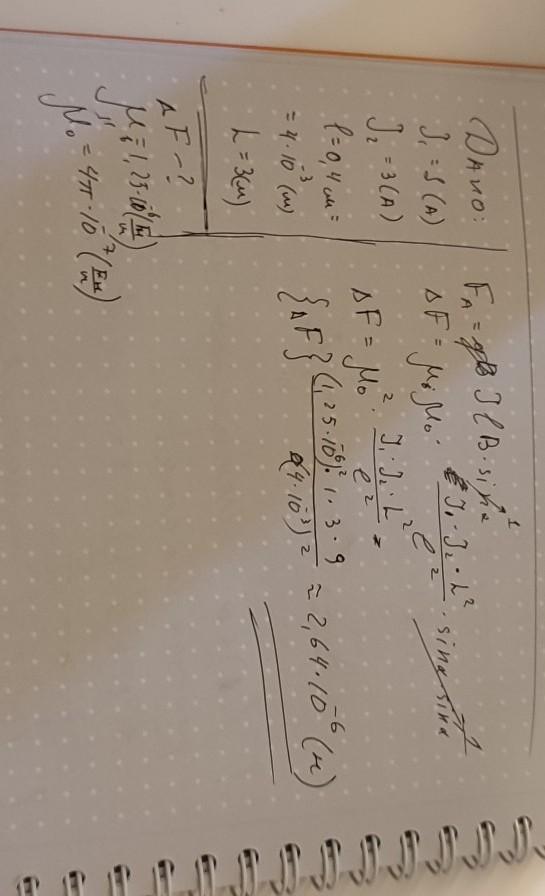 Дано:
J₁ = 5 (A)
J₂ = 3 (A)
l = 0,4 см =
= 4 · 10⁻³ (м)
L = 3(м)
ΔF - ?
μ₀ = 1,25 · 10⁻⁶ (Гн/м)
μ₀ = 4π · 10⁻⁷ (Гн/м)
F_A = J l B · sin α ¹
ΔF = μ₀ μ₀ · J₁ · J₂ · L² / l² · sin α · sin α ¹
ΔF = μ₀² · J₁ · J₂ · L² / l² =
{ΔF} (1,25 · 10⁻⁶)² · 1 · 3 · 9 / (4 · 10⁻³)² ≈ 2,64 · 10⁻⁶ (н)